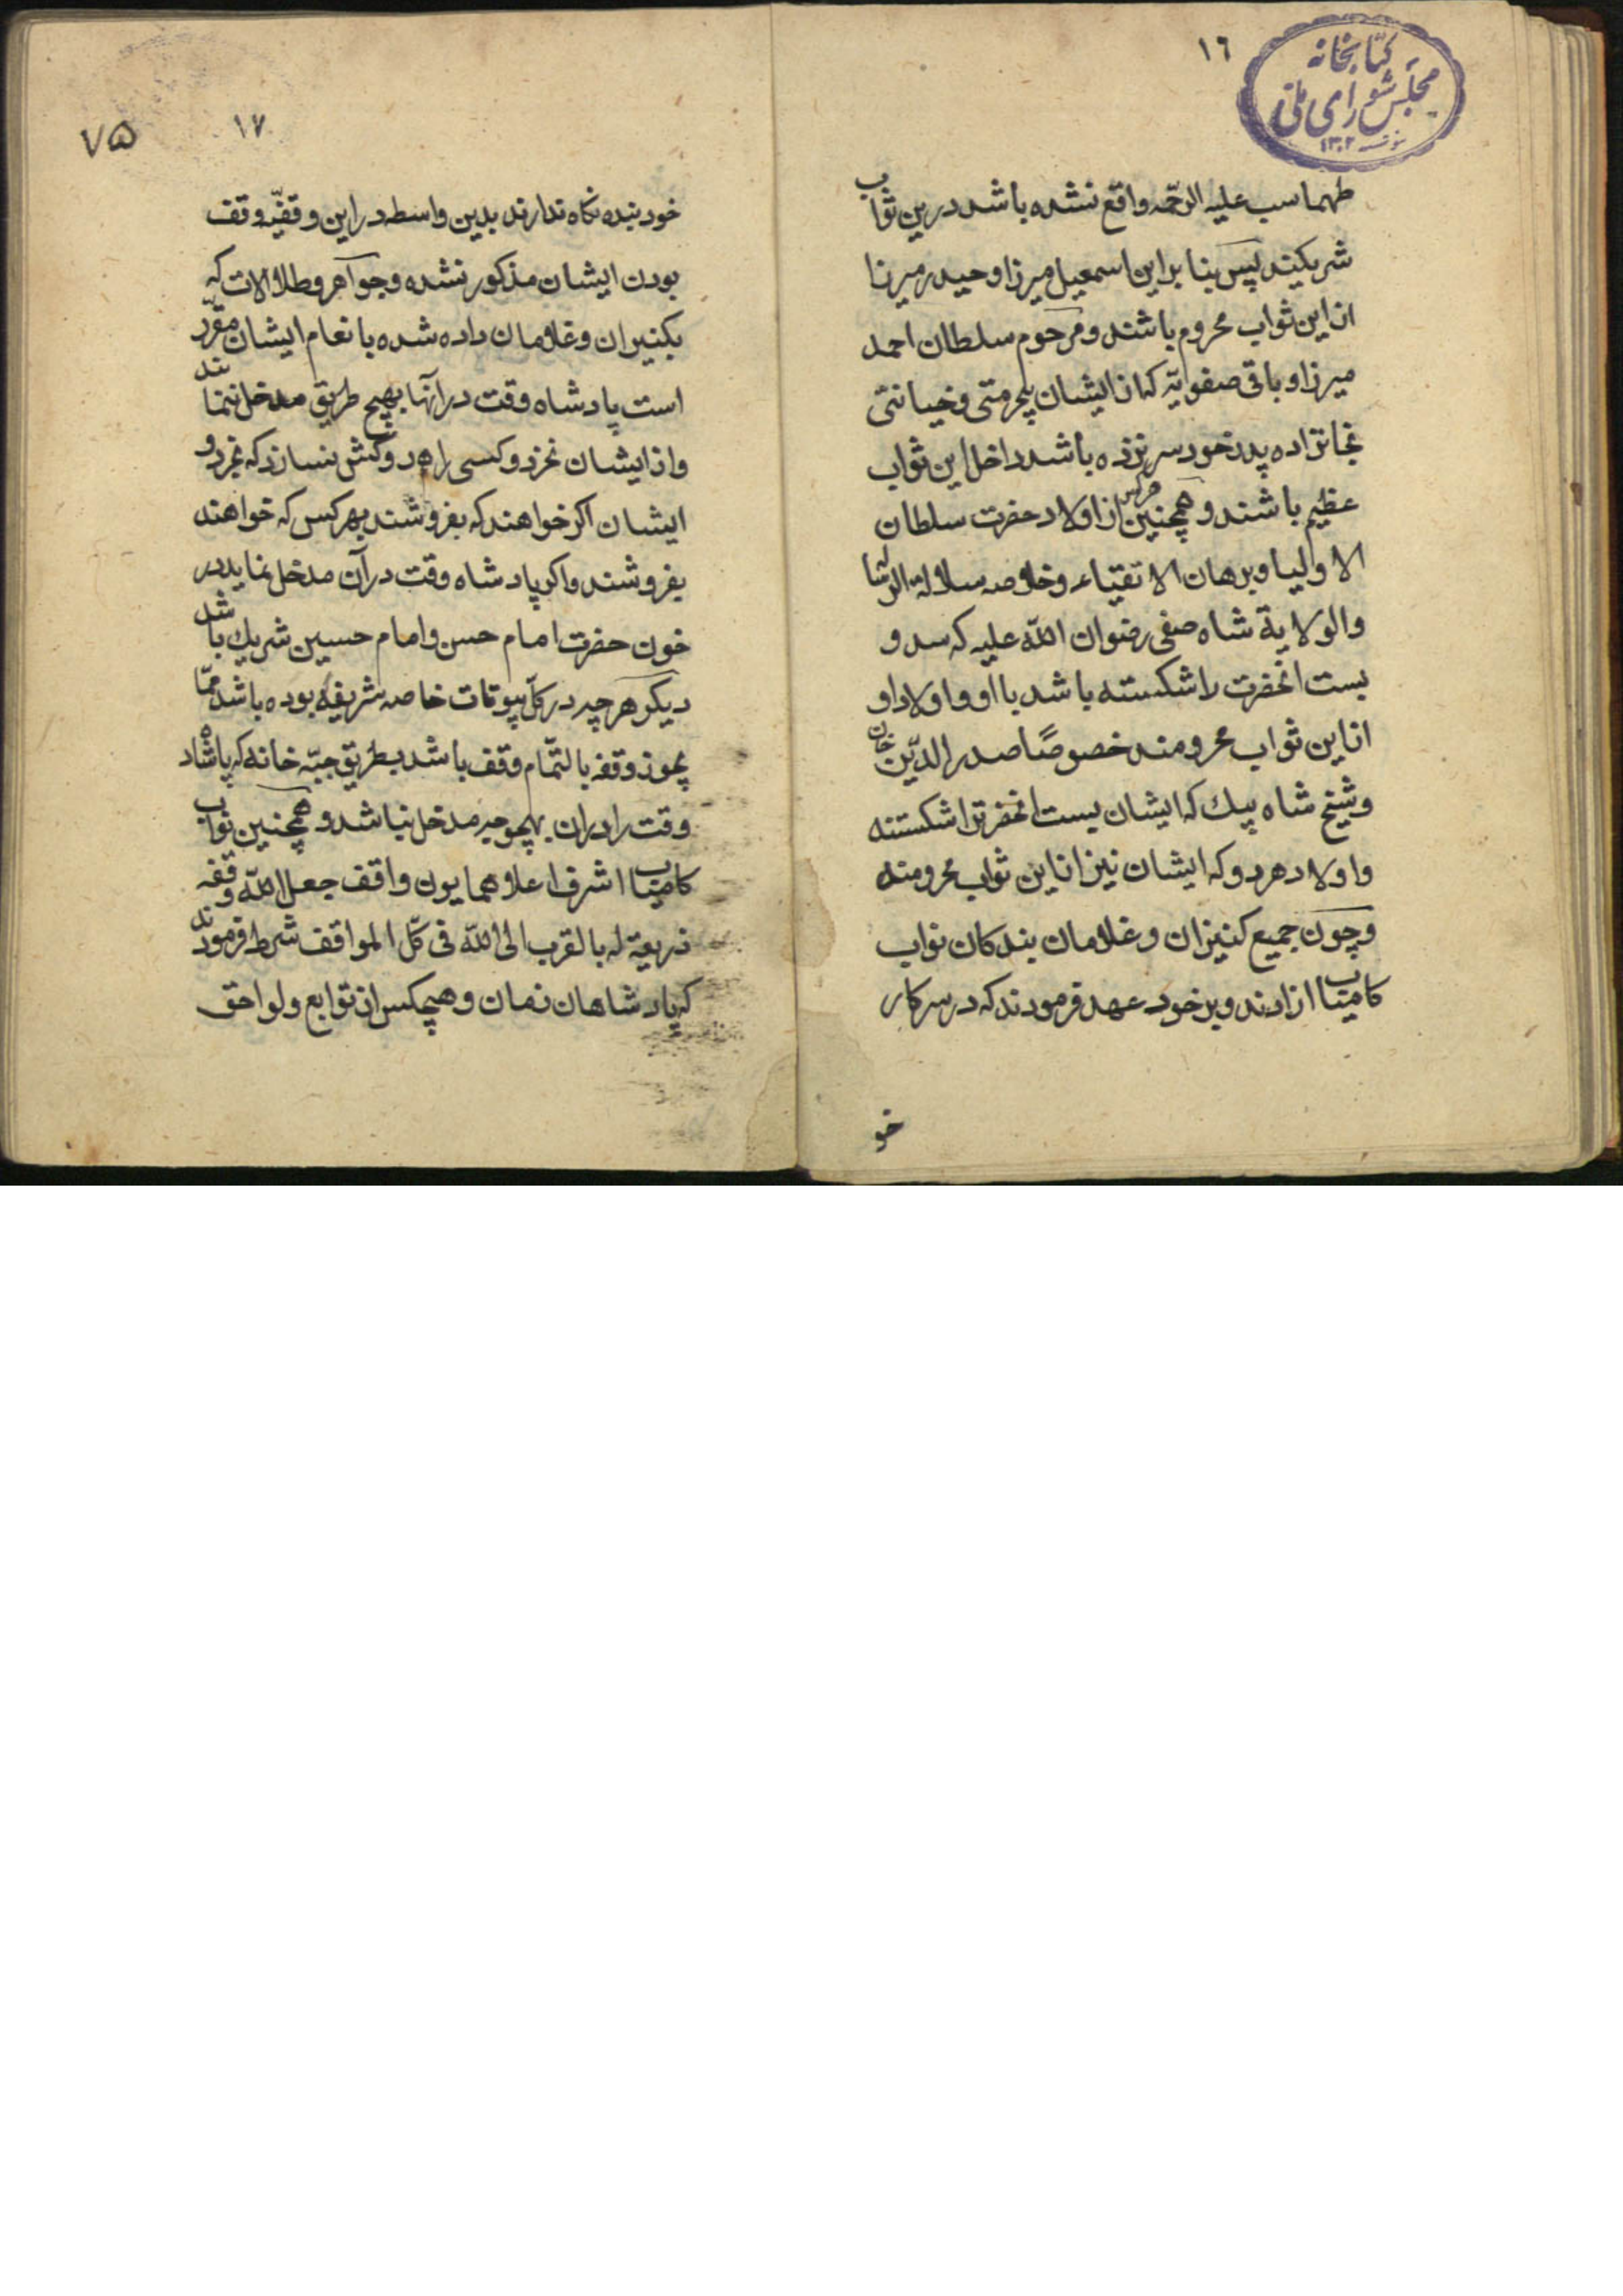 ١٦
کتابخانه
مجلس شورای ملی
١٣٠٢
طهماسب علیه الرحمه واقع نشده باشد درین ثواب
شریکند پس بنا براین اسمعیل میرزا و حیدر میرزا
از این ثواب محروم باشند و مرحوم سلطان احمد
میرزا و باقی صفویّه که از ایشان بیحرمتی و خیانتی
بخانزاده پدر خود سر نزده باشد داخل این ثواب
عظیم باشند و همچنین هرکس از اولاد حضرت سلطان
الاولیا و برهان الاتقیاء و خلاصه سلالة الرساله
والولایة شاه صفی رضوان الله علیه که سد و
بست انحضرت را شکسته باشد با او و اولاد او
از این ثواب محرومند خصوصًا صدر الدّین خان
و شیخ شاه بیك که ایشان بست انحضرترا شکستند
و اولاد هر دو که ایشان نیز از این ثواب محرومند
و چون جمیع کنیزان و غلامان بندکان نواب
کامیاب ازادند و بر خود عهد فرمودند که در سرکار
خو
١٧
٧۵
خود بنده نکاه ندارند بدین واسطه در این وقفیّه وقف
بودن ایشان مذکور نشده و جواهر و طلا الات که
بکنیزان و غلامان داده شده با نعام ایشان مقرّر
است پادشاه وقت در آنها بهیچ طریق مدخل ننمایند
و از ایشان نخرد و کسی را هم روکش نسازد که نخرد و
ایشان اکر خواهند که بفروشند بهر کس که خواهند
بفروشند و اکر پادشاه وقت در آن مدخل نماید در
خون حضرت امام حسن و امام حسین شریك باشد
دیکر هر چه در کل بیوتات خاصه شریفه بوده باشد ممّا
یجوز وقفه بالتّمام وقف باشد بطریق جبّه خانه که پادشاه
وقت را دران بهیچوجه مدخل نباشد و همچنین نواب
کامیاب اشرف اعلا همایون واقف جعل الله وقفه
ذریعة له بالقرب الی الله فی کلّ المواقف شرط فرمودند
که پادشاهان زمان و هیچکس از توابع و لواحق